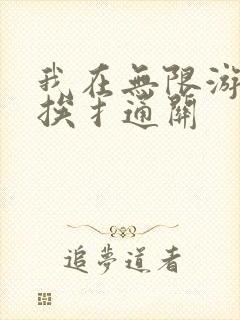 我在無限游
挨才通關
追夢道者